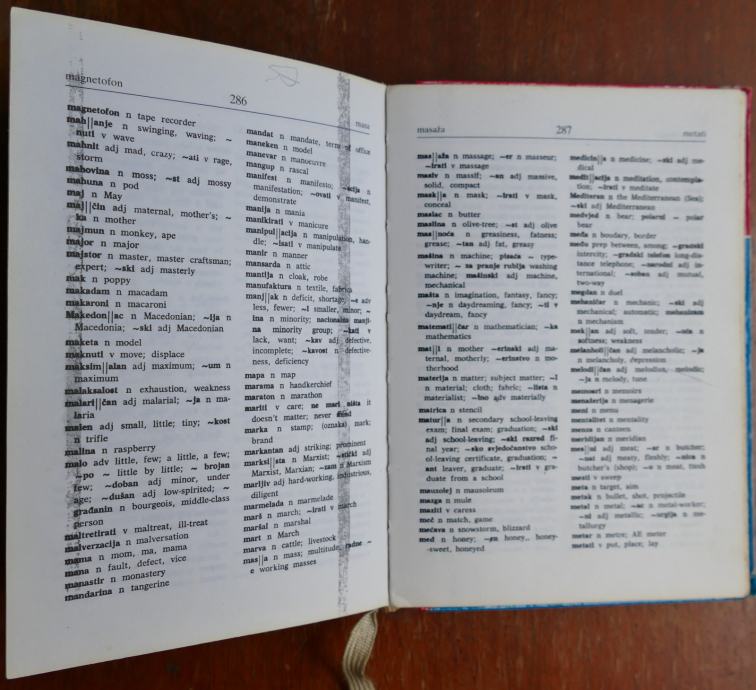 magnetofon
286
masa
magnetofon n tape recorder
mah||anje n swinging, waving; ~
nuti v wave
mahnit adj mad, crazy; ~ati v rage,
storm
mahovina n moss; ~st adj mossy
mahuna n pod
maj n May
maj||čin adj maternal, mother's; ~
ka n mother
majmun n monkey, ape
major n major
majstor n master, master craftsman;
expert; ~ski adj masterly
mak n poppy
makadam n macadam
makaroni n macaroni
Makedon||ac n Macedonian; ~ija n
Macedonia; ~ski adj Macedonian
maketa n model
maknuti v move; displace
maksim||alan adj maximum; ~um n
maximum
malaksalost n exhaustion, weakness
malari||čan adj malarial; ~ja n ma-
laria
malen adj small, little; tiny; ~kost
n trifle
malina n raspberry
malo adv little, few; a little, a few;
~po ~ little by little; ~ brojan
few; ~doban adj minor, under
age; ~dušan adj low-spirited; ~
građanin n bourgeois, middle-class
person
maltretirati v maltreat, ill-treat
malverzacija n malversation
mama n mom, ma, mama
mana n fault, defect, vice
manastir n monastery
mandarina n tangerine
mandat n mandate, term of office
maneken n model
manevar n manoeuvre
mangup n rascal
manifest n manifesto; ~acija n
manifestation; ~ovati v manifest,
demonstrate
manija n mania
manikirati v manicure
manipul||acija n manipulation, han-
dle; ~isati v manipulate
manir n manner
mansarda n attic
mantija n cloak, robe
manufaktura n textile, fabrics
manj||ak n deficit, shortage; ~e adv
less, fewer; ~i smaller, minor; ~
ina n minority; nacionalna manji-
na minority group; ~kati v
lack, want; ~kav adj defective,
incomplete; ~kavost n defective-
ness, deficiency
mapa n map
marama n handkerchief
maraton n marathon
mariti v care; ne mari ništa it
doesn't matter; never mind
marka n stamp; (oznaka) mark;
brand
markantan adj striking; prominent
marksi||sta n Marxist; ~stički adj
Marxist, Marxian; ~zam n Marxism
marljiv adj hard-working, industrious,
diligent
marmelada n marmelade
marš n march; ~irati v march
maršal n marshal
mart n March
marva n cattle; livestock
mas||a n mass; multitude; radne ~
e working masses
masaža
287
metati
mas||aža n massage; ~er n masseur;
~irati v massage
masiv n massif; ~an adj massive,
solid, compact
mask||a n mask; ~irati v mask,
conceal
maslac n butter
maslina n olive-tree; ~st adj olive
mas||noća n greasiness, fatness;
grease; ~tan adj fat, greasy
mašina n machine; pisaća ~ type-
writer; ~ za pranje rublja washing
machine; mašinski adj machine,
mechanical
mašta n imagination, fantasy, fancy;
~nje n daydreaming, fancy; ~ti v
daydream, fancy
matemati||čar n mathematician; ~ka
mathematics
mat||i n mother ~erinski adj ma-
ternal, motherly; ~erinstvo n mo-
therhood
materija n matter; subject matter; ~l
n material; cloth; fabric; ~lista n
materialist; ~lno adv materially
matrica n stencil
matur||a n secondary school-leaving
exam; final exam; graduation; ~ski
adj school-leaving; ~ski razred fi-
nal year; ~sko svjedočanstvo scho-
ol-leaving certificate, graduation; ~
ant leaver, graduate; ~irati v gra-
duate from a school
mauzolej n mausoleum
mazga n mule
maziti v caress
meč n match, game
mećava n snowstorm, blizzard
med n honey; ~en honey,, honey-
-sweet, honeyed
medicin||a n medicine; ~ski adj me-
dical
medit||acija n meditation, contempla-
tion; ~irati v meditate
Mediteran n the Mediterranean (Sea);
~ski adj Mediterranean
medvjed n bear; polarni ~ polar
bear
međa n boundary, border
među prep between, among; ~gradski
intercity; ~gradski telefon long-dis-
tance telephone; ~narodni adj in-
ternational; ~soban adj mutual,
two-way
megdan n duel
mehaničar n mechanic; ~ski adj
mechanical; automatic; mehanizam
n mechanism
mek||an adj soft, tender; ~oća n
softness; weakness
melanholi||čan adj melancholic; ~ja
n melancholy, depression
melodi||čan adj melodius, melodic;
~ja n melody, tune
memoari n memoirs
menažerija n menagerie
meni n menu
mentalitet n mentality
menza n canteen
meridijan n meridian
mes||ni adj meat; ~ar n butcher;
~nat adj meaty, fleshly; ~nica n
butcher's (shop); ~o n meat, flesh
mesti v sweep
meta n target, aim
metak n bullet, shot, projectile
metal n metal; ~ac n metal-worker;
~ni adj metallic; ~urgija n me-
tallurgy
metar n metre; AE meter
metati v put, place; lay